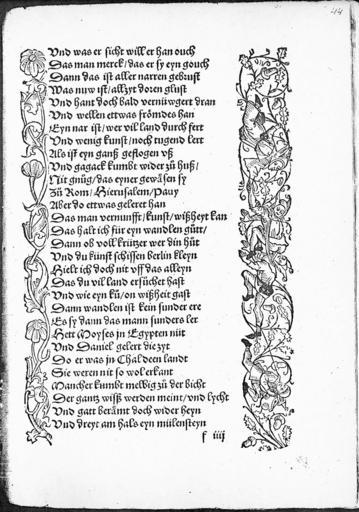 44
Vnd was er sicht will er han ouch
Das man merck / das er sy eyn gouch
Dann das ist aller narren gebrust
Was nuw ist / allzyt doren glust
Vnd hant doch bald vernüwgert dran
Vnd wellen ettwas frömdes han
Eyn nar ist / wer vil land durch fert
Vnd wenig kunst / noch tugend lert
Als ist eyn ganß geflogen vß
Vnd gagack kumbt wider zů huß /
Nit gnůg / das eyner gewäsen sy
Zů Rom / Hierusalem / Pauy
Aber do ettwas geleret han
Das man vernunfft / kunst / wißheyt kan
Das halt ich für eyn wandlen gůtt /
Dann ob voll krützer wer din hůt
Vnd du künst schissen berlin kleyn
Hielt ich doch nit vff das alleyn
Das du vil land ersůchet hast
Vnd wie eyn ků / on wißheit gast
Dann wandlen ist kein sunder ere
Es sy dann das man sunders ler
Hett Moyses jn Egypten nüt
Vnd Daniel gelert die zyt
So er was jn Chaldeen landt
Sie weren nit so wol erkant
Mancher kumbt melbig zů der bicht
Der gantz wiß werden meint / vnd lycht
Vnd gatt berämt doch wider heyn
Vnd dreyt am hals eyn mülensteyn
f iiij